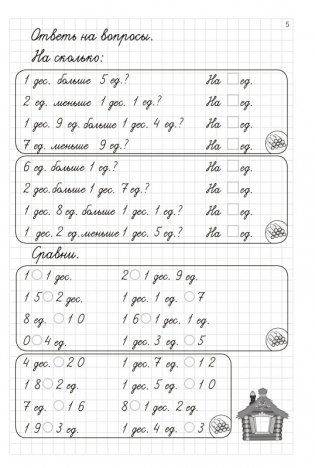 5
Ответь на вопросы.
На сколько:
1 дес. больше 5 ед.? На ед.
2 ед. меньше 1 дес. 1 ед.? На ед.
1 дес. 9 ед. больше 1 дес. 4 ед.? На ед.
7 ед. меньше 9 ед.? На ед.
6 ед. больше 1 ед.? На ед.
2 дес. больше 1 дес. 7 ед.? На ед.
1 дес. 8 ед. больше 1 дес. 1 ед.? На ед.
1 дес. 2 ед. меньше 1 дес. 5 ед.? На ед.
Сравни.
1 1 дес. 2 1 дес. 9 ед.
15 2 дес. 1 дес. 1 ед. 7
8 ед. 10 16 1 дес. 1 ед.
0 4 ед. 1 дес. 3 ед. 5
4 дес. 20 1 дес. 7 ед. 12
18 2 ед. 1 дес. 5 ед. 10
7 ед. 16 8 1 дес. 2 ед.
19 3 ед. 1 дес. 4 ед. 3